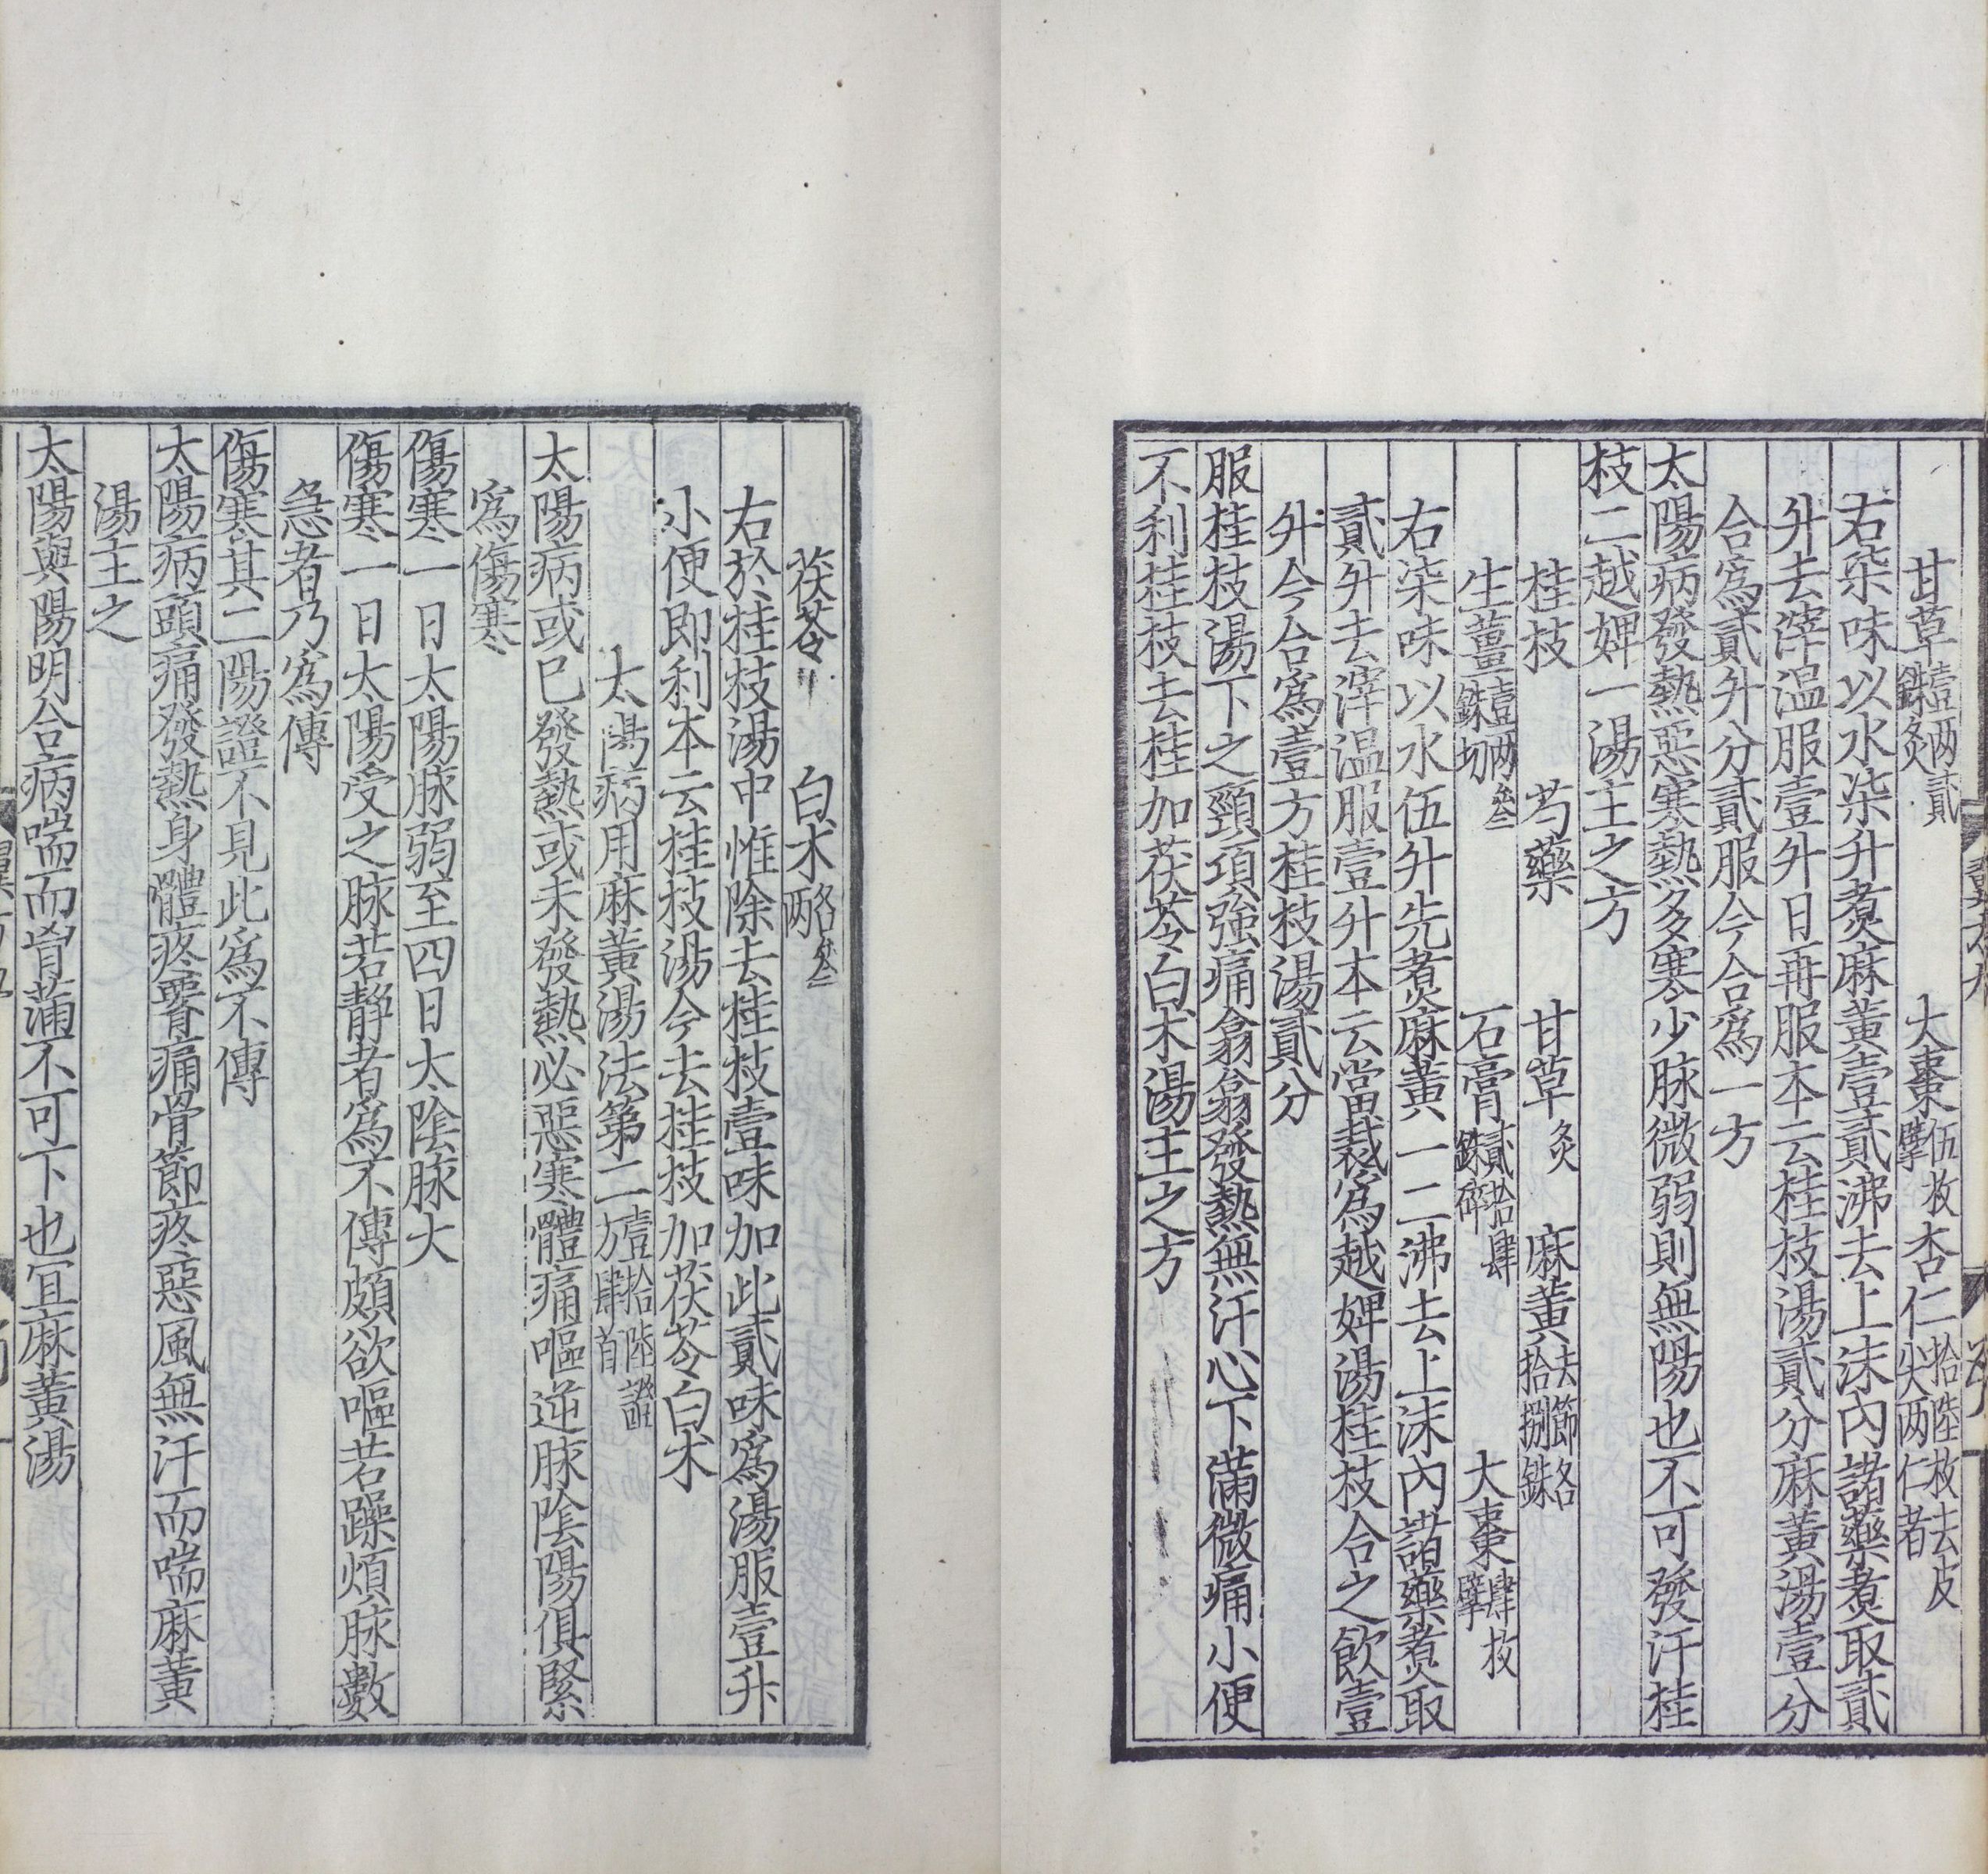 甘草壹两貳銖炙　大棗伍枚擘　杏仁拾陸枚去皮尖两仁者
右柒味以水柒升煑麻黃壹貳沸去上沫內諸藥煑取貳
升去滓温服壹升日再服本云桂枝湯貳分麻黃湯壹分
合爲貳升分貳服今合爲一方
太陽病發熱惡寒熱多寒少脉微弱則無陽也不可發汗桂
枝二越婢一湯主之方
桂枝　芍藥　甘草炙　麻黃去節各拾捌銖
生薑壹两叁銖切　石膏貳拾肆銖碎　大棗肆枚擘
右柒味以水伍升先煑麻黃一二沸去上沫內諸藥煑取
貳升去滓温服壹升本云當裁爲越婢湯桂枝合之飲壹
升今合爲壹方桂枝湯貳分
服桂枝湯下之頸項強痛翕翕發熱無汗心下滿微痛小便
不利桂枝去桂加茯苓白术湯主之方
茯苓　白术各叁两
右於桂枝湯中惟除去桂枝壹味加此貳味爲湯服壹升
小便即利本云桂枝湯今去桂枝加茯苓白术
太陽病用麻黃湯法第二壹拾陸證方肆首
太陽病或已發熱或未發熱必惡寒體痛嘔逆脉陰陽俱緊
爲傷寒
傷寒一日太陽脉弱至四日太陰脉大
傷寒一日太陽受之脉若靜者爲不傳頗欲嘔若躁煩脉數
急者乃爲傳
傷寒其二陽證不見此爲不傳
太陽病頭痛發熱身體疼𦝫痛骨節疼惡風無汗而喘麻黃
湯主之
太陽與陽明合病喘而胷滿不可下也宜麻黃湯